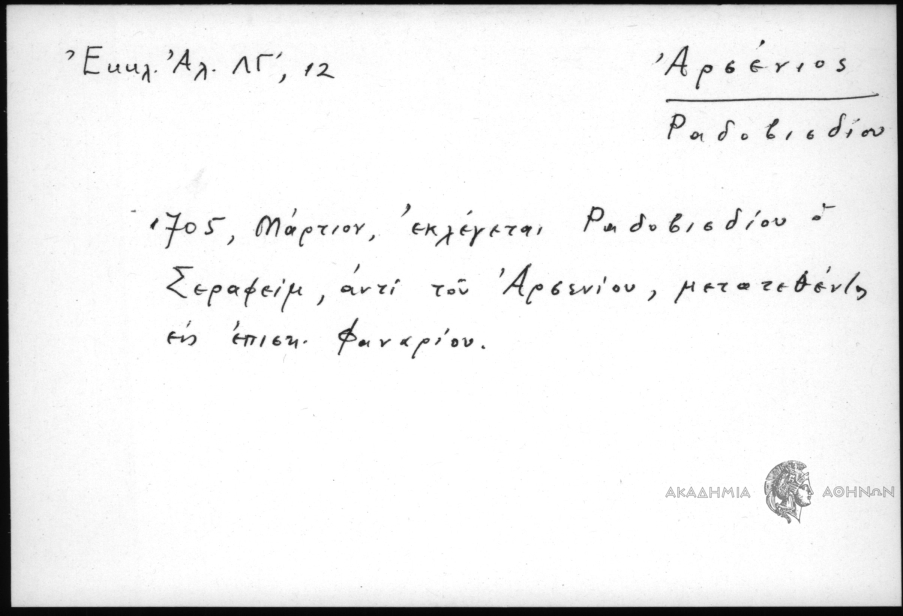 Ἐκκλ. Ἀλ. ΛΓ', 12
Ἀρσένιος
Ραδοβισδίου
1705, Μάρτιον, ἐκλέγεται Ραδοβισδίου ὁ
Σεραφείμ, ἀντὶ τοῦ Ἀρσενίου, μετατεθέντος
εἰς ἐπισκ. Φαναρίου.
ΑΚΑΔΗΜΙΑ ΑΘΗΝΩΝ